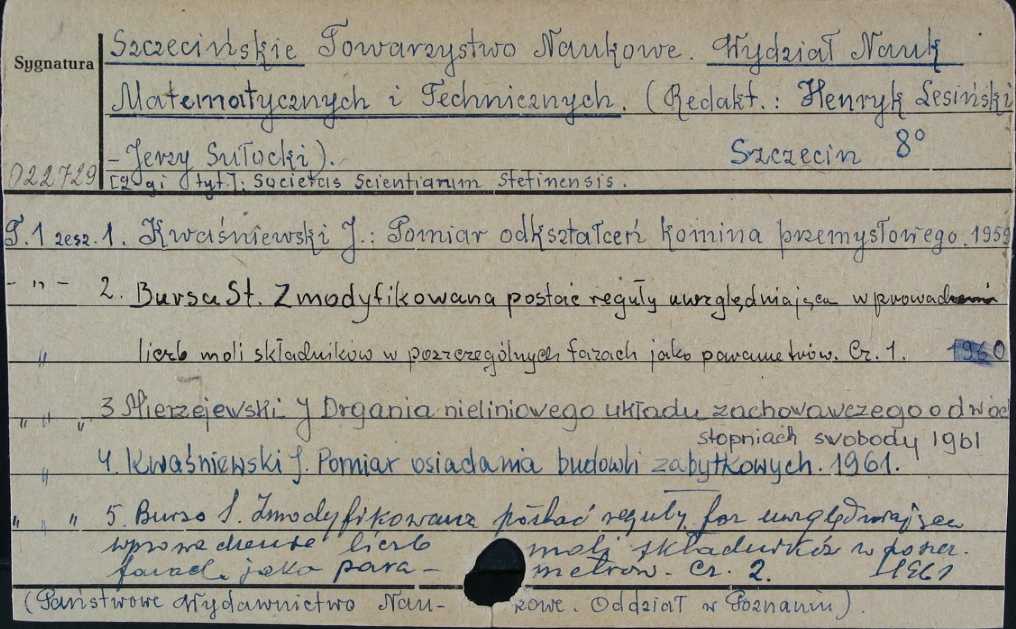 Szczecińskie Towarzystwo Naukowe. Wydział Nauk
Sygnatura
Matematycznych i Technicznych. (Redakt.: Henryk Lesiński
- Jerzy Sułocki). Szczecin 8°
022729 [2-gi tyt.]: Societas Scientiarum Stetinensis.
T. 1 zesz. 1. Kwaśniewski J.: Pomiar odkształceń komina przemysłowego. 1959
- " - 2. Bursa St. Zmodyfikowana postać reguły uwzględniająca wprowadzenia
" liczb moli składników w poszczególnych fazach jako parametrów. Cz. 1. 1960
" " " 3 Mierzejewski J Drgania nieliniowego układu zachowawczego o dwóch
stopniach swobody 1961
" 4. Kwaśniewski J. Pomiar osiadania budowli zabytkowych. 1961.
" " " 5. Bursa S. Zmodyfikowana postać reguły faz uwzględniająca
wprowadzenie liczb moli składników w poszcz.
fazach jako para- metrów. Cz. 2. 1961
(Państwowe Wydawnictwo Nau- kowe. Oddział w Poznaniu).